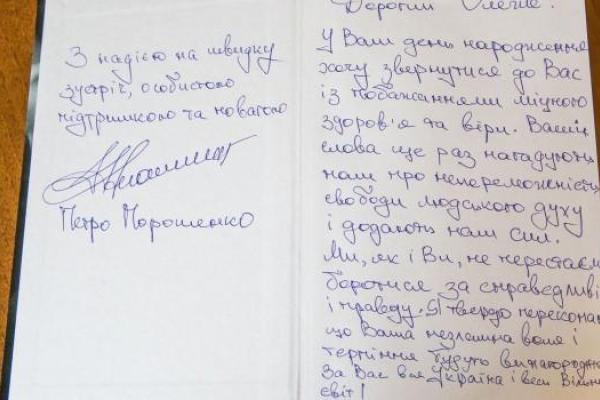 З надією на швидку
зустріч, особистою
підтримкою та повагою
Петро Порошенко
Дорогий
У Ваш день народження
хочу звернутися до Вас
із побажаннями міцного
здоров'я та віри. Ваші
слова ще раз нагадують
нам про непереможність
свободи людського духу
і додають нам сил.
Ми, як і Ви, не перестаєм
боротися за справедливі
і правду. Я твердо перекона
що Ваша незламна воля і
терпіння будуть винагородже
За Вас вся Україна і весь Вільн
світ!